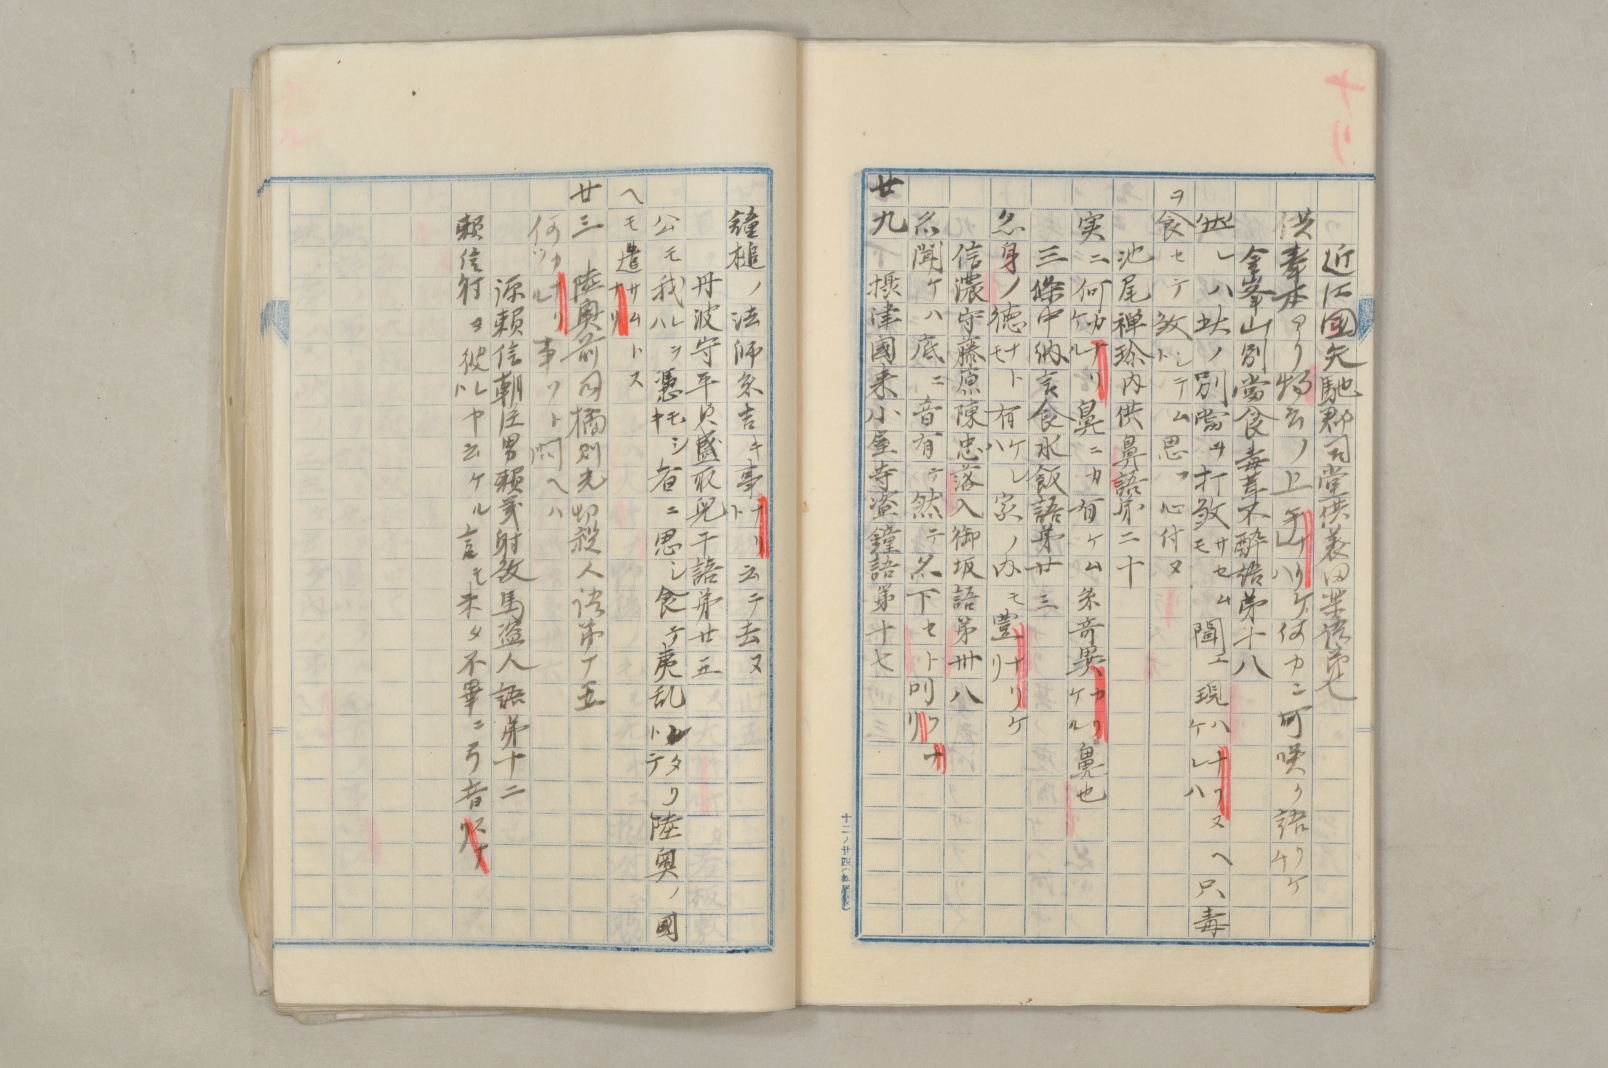 近江國矢馳郡司堂供養田楽語第七
供奉
金峯山別當食毒茸不酔語第十八
然レハ此ノ別當ヲ打殺サセム聞エ現ハナリヌヘ只毒
ヲ食セテ殺シテム思フ心付ヌ
池尾禅珍内供鼻語第二十
実ニ何カナリケル鼻ニカ有ケム糸奇異カリケル鼻也
三條中納言食水飯語第廿三
身ノ徳ナト有ケレハ家ノ内モ豊ナリケリ
信濃守藤原陳忠落入御坂語第卅八
聞ケハ底ニ音有テ然テ
廿九 摂津國来小屋寺盗鐘語第十七
鐘槌ノ法師糸吉キ事ナリト云テ去ヌ
丹波守平貞盛取児干語第廿五
公モ我レヲハ憑モシキ者ニ思シ食テ夷乱レタリトテ陸奥ノ國
ヘモ遣サムトスナリ
廿三 陸奥前司橘則光切殺人語第十五
何ツカナリツル事ソト問ヘハ
源頼信朝臣男頼義射殺馬盗人語第十二
頼信射ヨ彼レヤト云ケル言モ未タ不畢ニ弓音スナリ
十二ノ廿四